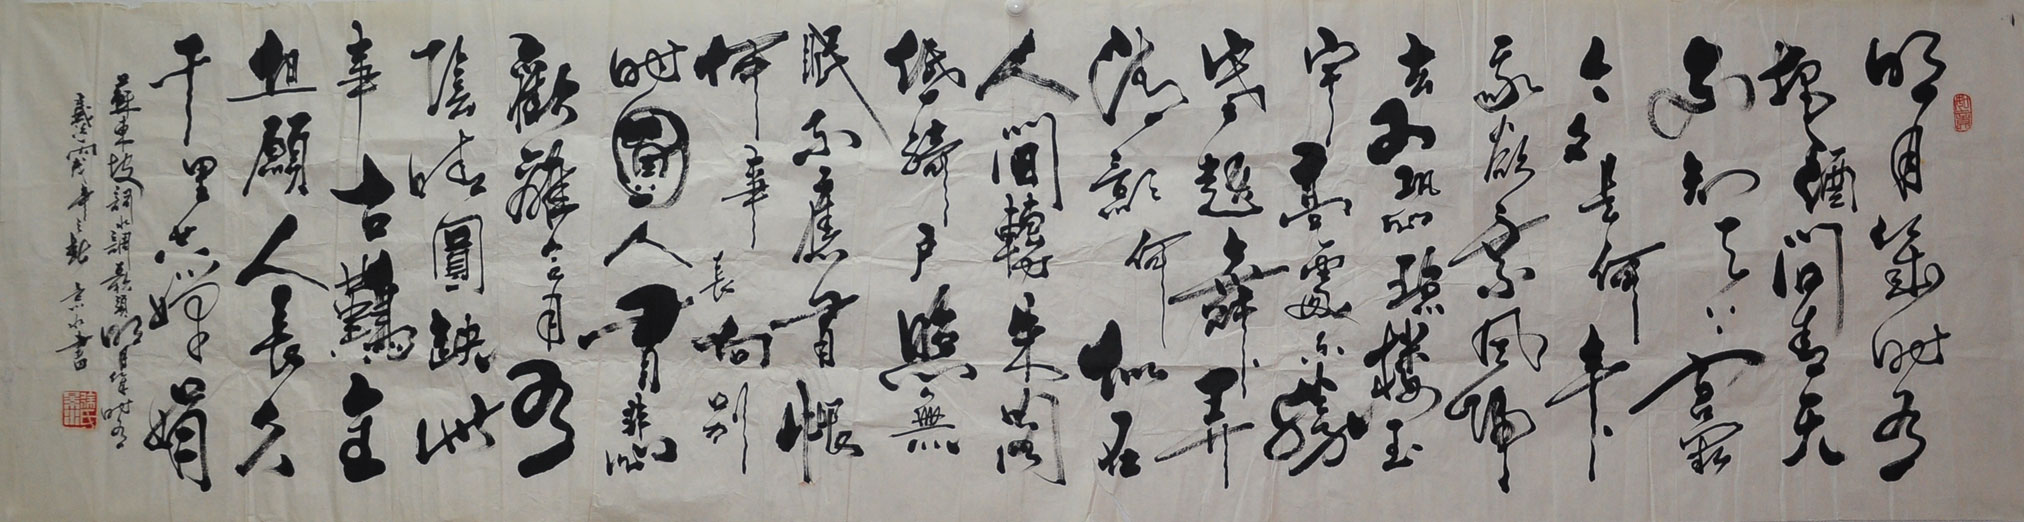 明月幾時有
把酒問青天
不知天上宮闕
今夕是何年
我欲乘風歸
去又恐瓊樓玉
宇高處不勝
寒起舞弄
清影何似在
人間轉朱閣
低綺戶照無
眠不應有恨
何事長向別
時圓人有悲
歡離合月有
陰晴圓缺此
事古難全
但願人長久
千里共嬋娟
蘇東坡詞水調歌頭明月幾時有
歲次丙戌年之秋書